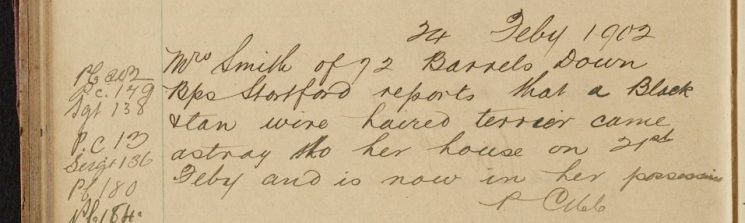 24 Feby 1902
Mrs Smith of 72 Barrels Down
Bps Stortford reports that a Black
& tan wire haired terrier came
astray to her house on 21st
Feby and is now in her possession
P.C. 149
Sgt 138
P.C 13
Sergt 136
PC 180